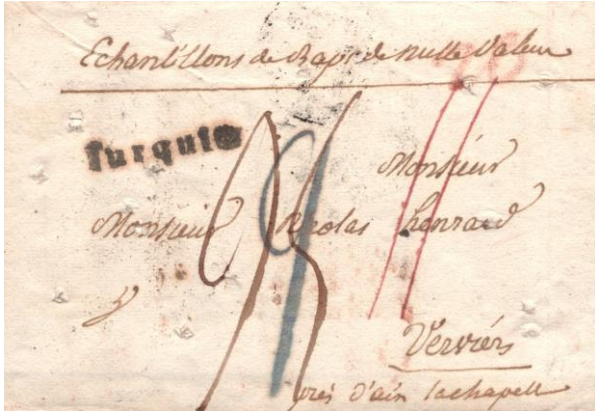 Echantillons de Raps de nulle Valeur
Turquie
Monsieur
Monsieur Nicolas henrard
Verviérs
près d'aix lachapelle